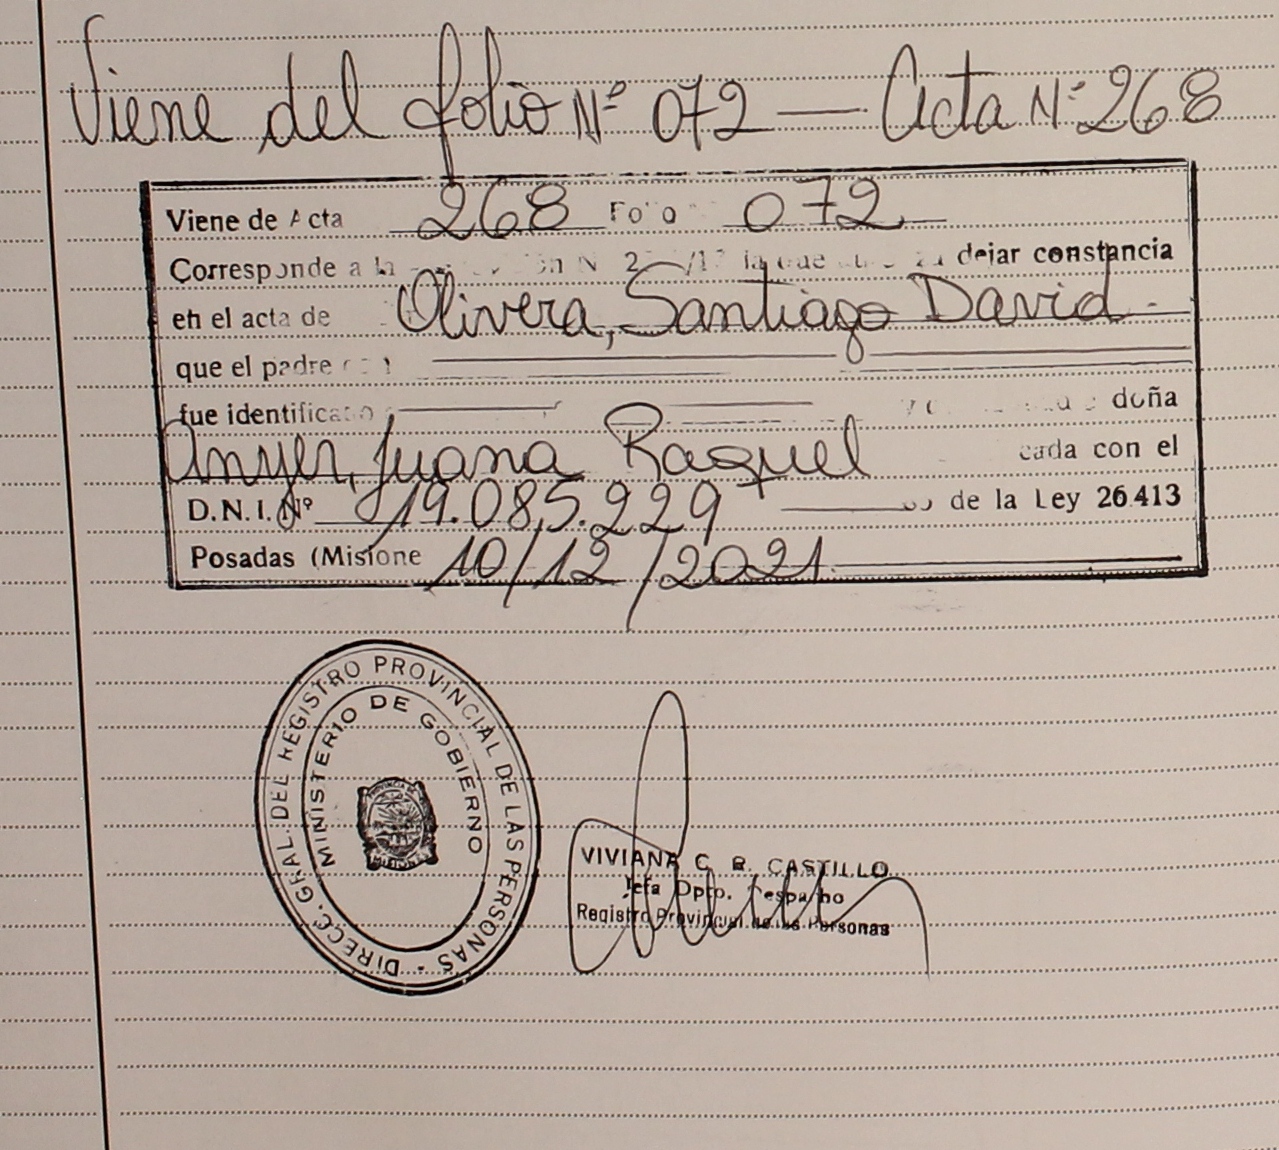 Viene del folio Nº 072 — Acta Nº 268
Viene de Acta 268 Folio 072
Corresponde a la dejar constancia
en el acta de Olivera, Santiago David -
que el padre
fue identificado doña
Anyer, Juana Raquel cada con el
D.N.I. Nº 19.085.229 de la Ley 26.413
Posadas (Misione 10/12/2021
DIRECC. GRAL. DEL REGISTRO PROVINCIAL DE LAS PERSONAS -
MINISTERIO DE GOBIERNO
MISIONES
VIVIANA C. B. CASTILLO
Jefa Dpto. Despacho
Registro Provincial de las Personas